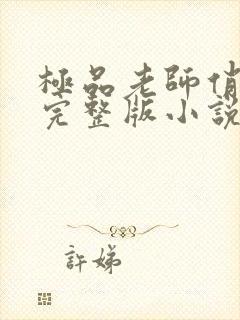 極品老師俏
完整版小說
許娣